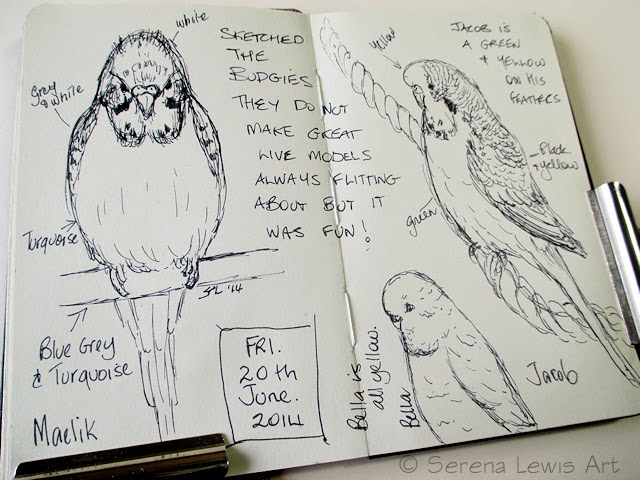 white
Grey
& white
Turquoise
Blue Grey
& Turquoise
Maelik
SL '14
SKETCHED
THE
BUDGIES
THEY DO NOT
MAKE GREAT
LIVE MODELS
ALWAYS FLITTING
ABOUT BUT IT
WAS FUN!
FRI.
20th
June.
2014
yellow
JACOB IS
A GREEN
& YELLOW
ON HIS
FEATHERS
Black
& yellow
green
Bella is
all yellow.
Bella
Jacob
© Serena Lewis Art